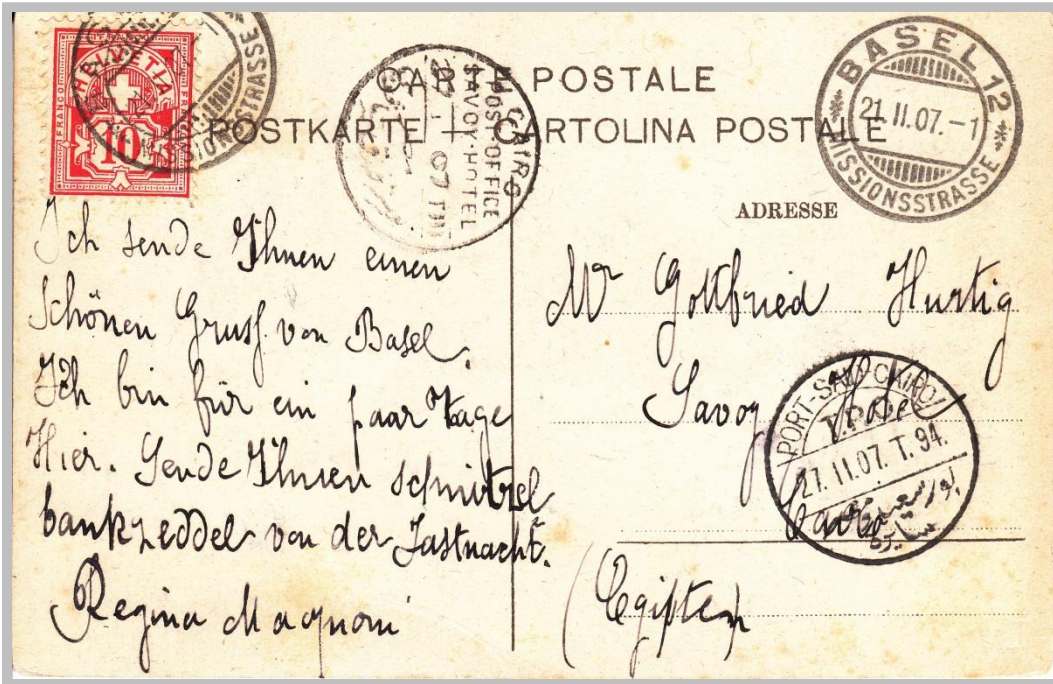 CARTE POSTALE
POSTKARTE — CARTOLINA POSTALE
HELVETIA
FRANCO
FRANCO
10
MISSIONSTRASSE
CAIRO
POST-OFFICE
SAVOY-HOTEL
07
BASEL 12
21.II.07.-1
MISSIONSSTRASSE
ADRESSE
Ich sende Ihnen einen
schönen Gruss von Basel.
Ich bin für ein paar Tage
Hier. Sende Ihnen schnitzel
bankzeddel von der Fastnacht.
Regina Magnoni
Mr Gottfried Hurtig
Savoy
Cairo
(Egipten)
PORT-SAID-CAIRO
27.II.07. T. 94.
بورسعيد